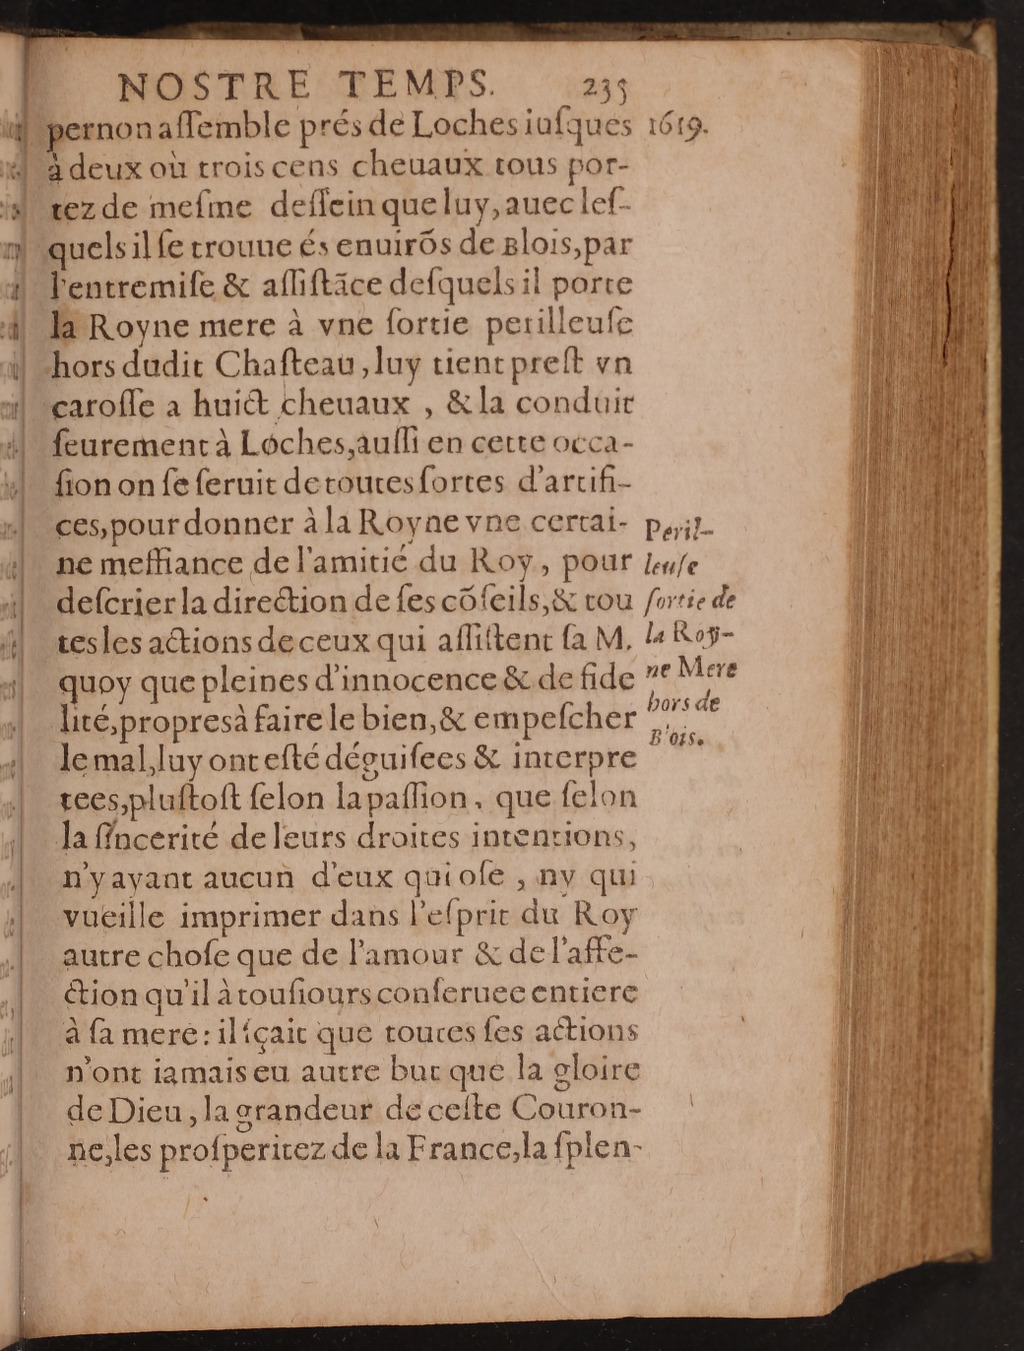 NOSTRE TEMPS. 235
pernon assemble prés de Loches iusques 1619.
à deux ou trois cens cheuaux tous por-
tez de mesme dessein que luy, auec les-
quels il se trouue és enuirõs de Blois, par
l'entremise & assistãce desquels il porte
la Royne mere à vne sortie perilleuse
hors dudit Chasteau, luy tient prest vn
carosse a huict cheuaux, & la conduit
seurement à Loches, aussi en cette occa-
sion on se seruit de toutes sortes d'artifi-
ces, pour donner à la Royne vne certai-
ne meffiance de l'amitié du Roy, pour
descrier la direction de ses cõseils, & tou
tes les actions de ceux qui assistent sa M.
quoy que pleines d'innocence & de fide
lité, propres à faire le bien, & empescher
le mal, luy ont esté déguisees & interpre
tees, plustost selon la passion, que selon
la sincerité de leurs droites intentions,
n'y ayant aucun d'eux qui ose, ny qui
vueille imprimer dans l'esprit du Roy
autre chose que de l'amour & de l'affe-
ction qu'il à tousiours conseruee entiere
à sa mere: il sçait que toutes ses actions
n'ont iamais eu autre but que la gloire
de Dieu, la grandeur de ceste Couron-
ne, les prosperitez de la France, la splen-
Peril-
leuse
sortie de
la Roy-
ne Mere
hors de
Blois.